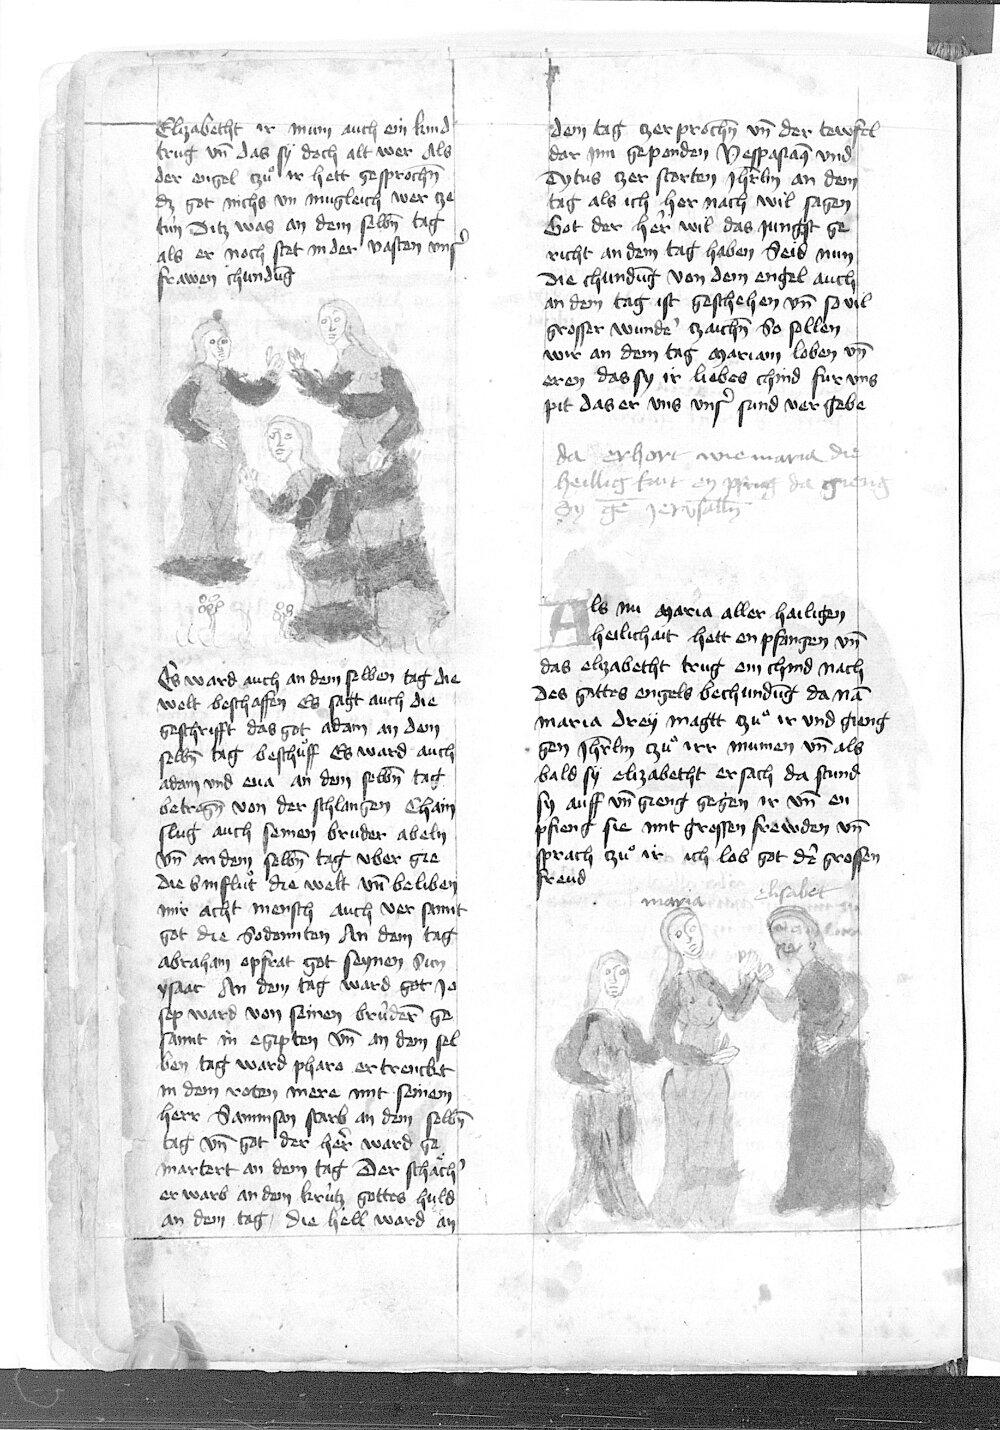 Elizabetht ir mum auch ein kind
trug vn̄ das sy doch alt wer Als
der engel zuͦ ir hett gesprochn̄
dz got nichs vn mugleich wer cze
tun Ditz was an dem selbn̄ tag
als er noch stet in der vasten vnsˀ
frawen chundūg
Es ward auch an dem selben tag die
welt beschaffen Es sagt auch die
geschrifft das got adam an dem
selbn̄ tag beschuͦff Es ward auch
adam vnd eua an dem selbn̄ tag
betrogn̄ von der schlangen Chain
slug auch seinen bruder abeln
vn̄ an dem selbn̄ tag vber gie
die sinfluͦt die welt vn̄ beliben
nür acht mensch auch ver sannt
got die Sodomiten An dem tag
abraham opfrat got seynen Sun
ysaac An dem tag ward got Jo
sep ward von seinen brüdern̄ ge
sannt in egipten vn̄ an dem sel
ben tag ward pharo ertrenckt
in dem roten mere mit seinem
herr Sammson starb an dem selbn̄
tag vn̄ got der her̄ ward ge
martert an dem tag Der schächˀ
erwarb an dem krütz gottes huld
an dem tag / die hell ward an
dem tag czerprochn̄ vn̄ der tewfel
dar inn geponden Vespasian̄ vnd
Tytus czer storten Jhrl̄m an dem
tag als ich her nach wil sagen
Got der her̄ wil das Jungst ge
richt an dem tag haben Seid nun
die chundūg von dem engel auch
an dem tag ist geschehen vn̄ so vil
grosser wundeˀ czaichn̄ So sollen
wir an dem tag Mariam loben vn̄
eren das sy ir liebes chind fur vns
pit das er vns vnsˀ sund ver gebe
da erhort wie maria die
heillig frut en pfing da gieng
Sy gē Jerusallm̄
Als nu Maria aller hailigen
heilichait hett enpfangen vn̄
das elizabetht trug ein chind nach
des gottes engels bechundūg da nā
maria dreÿ magtt zuͦ ir vnd gieng
gen Jhrl̄m zuͦ irr mumen vn̄ als
bald sy elizabetht ersach da stund
sy auff vn̄ gieng gegen ir vn̄ en
pfieng sie mit grossen frewden vn̄
sprach zuͦ ir ich lob got dˀ grossen
freud
maria elisabet